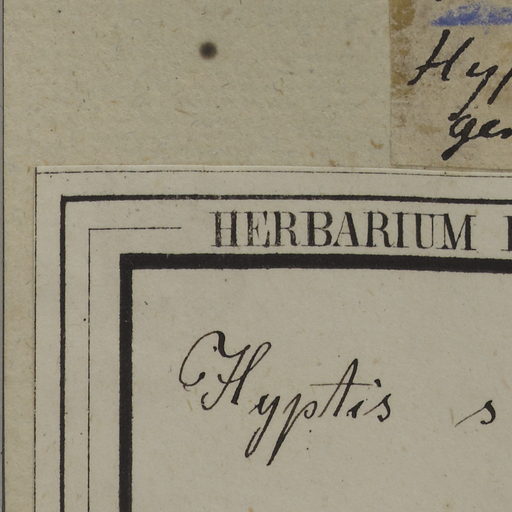 Hyp
gen
HERBARIUM
Hyptis s